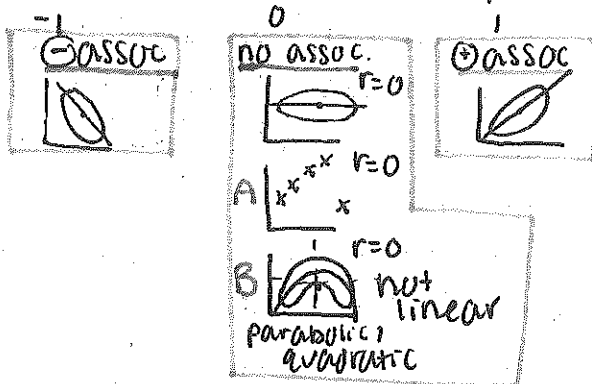 -1
⊖ assoc
0
no assoc.
r=0
A
r=0
B
r=0
not
linear
parabolic,
quadratic
1
⊕ assoc